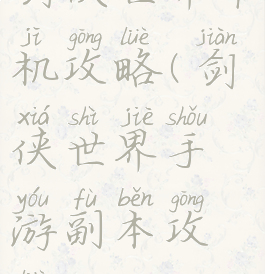 jī gōng lüè jiàn
机攻略(剑
xiá shì jiè shǒu
侠世界手
yóu fù běn gōng
游副本攻